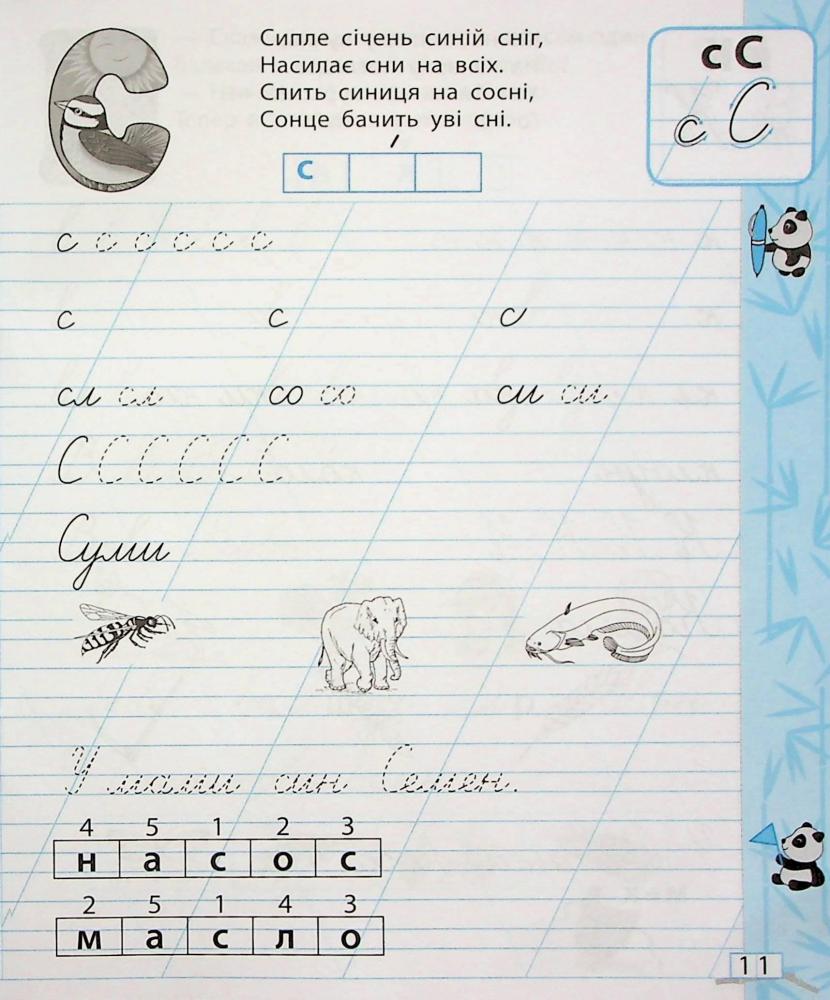 Сипле січень синій сніг,
Насилає сни на всіх.
Спить синиця на сосні,
Сонце бачить уві сні.
с С
с С
С
с
с с с с с с
с с с
сл сл со со си си
С С С С С С
Суми
У мами син Семен.
4 5 1 2 3
н а с о с
2 5 1 4 3
м а с л о
11